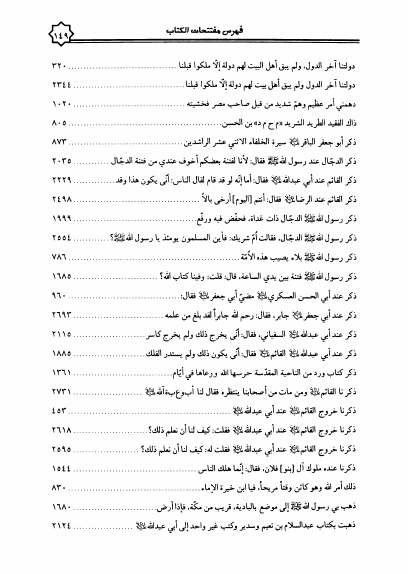 فهرس مفتتحات الكتاب
١٤٩
دولتنا آخر الدول، ولم يبق أهل البيت لهم دولة إلّا ملكوا قبلنا ٣٢٠
دولتنا آخر الدول، ولم يبق أهل بيت لهم دولة إلّا ملكوا قبلنا ٢٣٤٤
دهمني أمر عظيم وهمّ شديد من قبل صاحب مصر فخشيته ١٠٢٠
ذاك الفقيد الطريد الشريد «م ح م د» بن الحسن ٨٠٥
ذكر أبو جعفر الباقر سيرة الخلفاء الاثني عشر الراشدين ٨٧٣
ذكر الدجّال عند رسول الله ﷺ فقال: لأنا لفتنة بعضكم أخوف عندي من فتنة الدجّال ٢٠٣٥
ذكر القائم عند أبي عبدالله فقال: أما إنّه لو قد قام لقال الناس: أنّى يكون هذا وقد ٢٢٢٩
ذكر القائم عند الرضا فقال: أنتم [اليوم] أرخى بالاً ٢٤٩٨
ذكر رسول الله ﷺ الدجّال ذات غداة، فخفّض فيه ورفّع ١٩٩٩
ذكر رسول الله ﷺ الدجّال، فقالت أمّ شريك: فأين المسلمون يومئذ يا رسول الله ﷺ؟ ٢٥٥٤
ذكر رسول الله ﷺ بلاء يصيب هذه الأمّة ٧٨٦
ذكر رسول الله ﷺ فتنة بين يدي الساعة، قال: قلت: وفينا كتاب الله؟ ١٦٨٥
ذكر عند أبي الحسن العسكري مضيّ أبي جعفر فقال: ٩٦٠
ذكر عند أبي جعفر جابر، فقال: رحم الله جابراً لقد بلغ من علمه ٢٦٩٣
ذكر عند أبي عبدالله السفياني، فقال: أنّى يخرج ذلك ولم يخرج كاسر ٢١١٥
ذكر عند أبي عبدالله القائم فقال: أنّى يكون ذلك ولم يستدر الفلك ١٨٨٥
ذكر كتاب ورد من الناحية المقدّسة حرسها الله ورعاها في أيّام ١٣٦١
ذكرنا القائم ومن مات من أصحابنا ينتظره فقال لنا أبو عبدالله ٢٧٣١
ذكرنا خروج القائم عند أبي عبدالله ٤٥٣
ذكرنا خروج القائم عند أبي عبدالله فقلت: كيف لنا أن نعلم ذلك؟ ٢٦١٨
ذكرنا خروج القائم عند أبي عبدالله فقلت له: كيف لنا أن نعلم ذلك؟ ٢٥٩٥
ذكرنا عنده ملوك آل [بنو] فلان، فقال: إنّما هلك الناس ١٥٤٤
ذلك أمر الله وهو كائن وقتاً مريحاً، فيا ابن خيرة الإماء ٨٣٠
ذهب بي رسول الله ﷺ إلى موضع بالبادية، قريب من مكّة، فإذا أرض ١٦٨٠
ذهبت بكتاب عبدالسلام بن نعيم وسدير وكتب غير واحد إلى أبي عبدالله ٢١٢٤